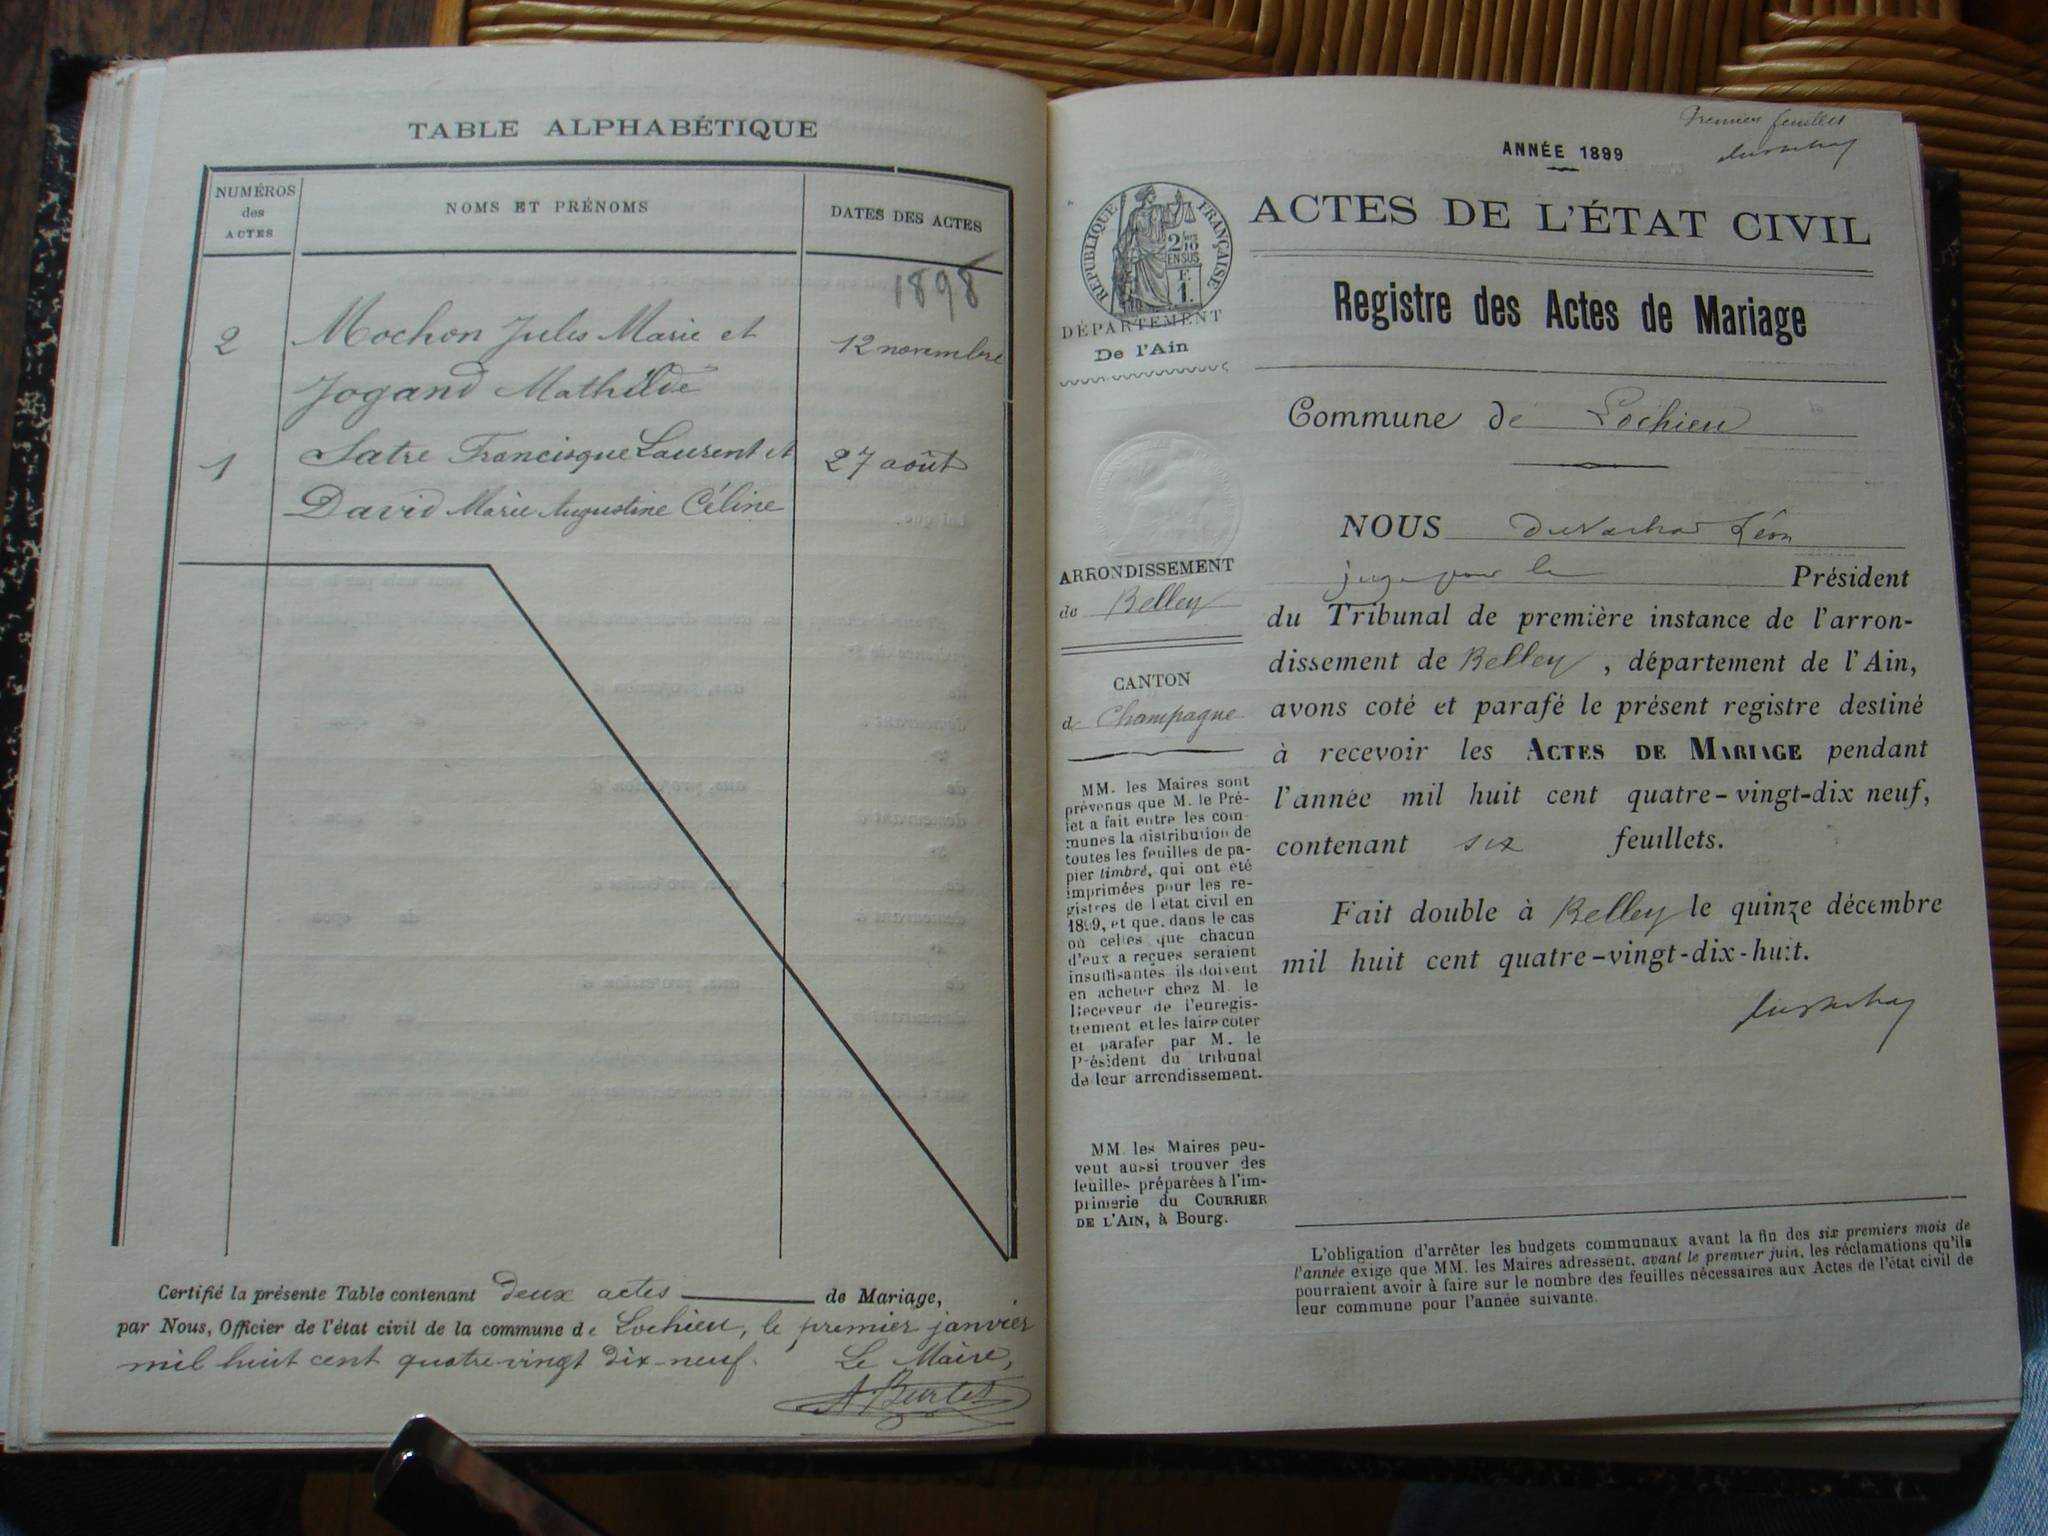 TABLE ALPHABÉTIQUE
NUMÉROS
des
ACTES
NOMS ET PRÉNOMS
DATES DES ACTES
1898
2 Mochon Jules Marie et 12 novembre
Jogand Mathilde
1 Satre Francisque Laurent et 27 août
David Marie Augustine Céline
Certifié la présente Table contenant deux actes de Mariage,
par Nous, Officier de l'état civil de la commune de Lochieu, le premier janvier
mil huit cent quatre-vingt dix-neuf. Le Maire,
Premier feuillet
ANNÉE 1899
ACTES DE L'ÉTAT CIVIL
Registre des Actes de Mariage
RÉPUBLIQUE FRANÇAISE
2/10
EN SUS
F.
1.
DÉPARTEMENT
De l'Ain
Commune de Lochieu
ARRONDISSEMENT
de Belley
CANTON
d Champagne
MM. les Maires sont
prévenus que M. le Pré-
fet a fait entre les com-
munes la distribution de
toutes les feuilles de pa-
pier timbré, qui ont été
imprimées pour les re-
gistres de l'état civil en
1899, et que, dans le cas
où celles que chacun
d'eux a reçues seraient
insuffisantes ils doivent
en acheter chez M. le
Receveur de l'enregis-
trement et les faire coter
et parafer par M. le
Président du tribunal
de leur arrondissement.
MM. les Maires peu-
vent aussi trouver des
feuilles préparées à l'im-
primerie du COURRIER
DE L'AIN, à Bourg.
NOUS Léon
juge pour le Président
du Tribunal de première instance de l'arron-
dissement de Belley, département de l'Ain,
avons coté et parafé le présent registre destiné
à recevoir les ACTES DE MARIAGE pendant
l'année mil huit cent quatre-vingt-dix neuf,
contenant six feuillets.
Fait double à Belley le quinze décembre
mil huit cent quatre-vingt-dix-huit.
L'obligation d'arrêter les budgets communaux avant la fin des six premiers mois de
l'année exige que MM. les Maires adressent, avant le premier juin, les réclamations qu'ils
pourraient avoir à faire sur le nombre des feuilles nécessaires aux Actes de l'état civil de
leur commune pour l'année suivante.